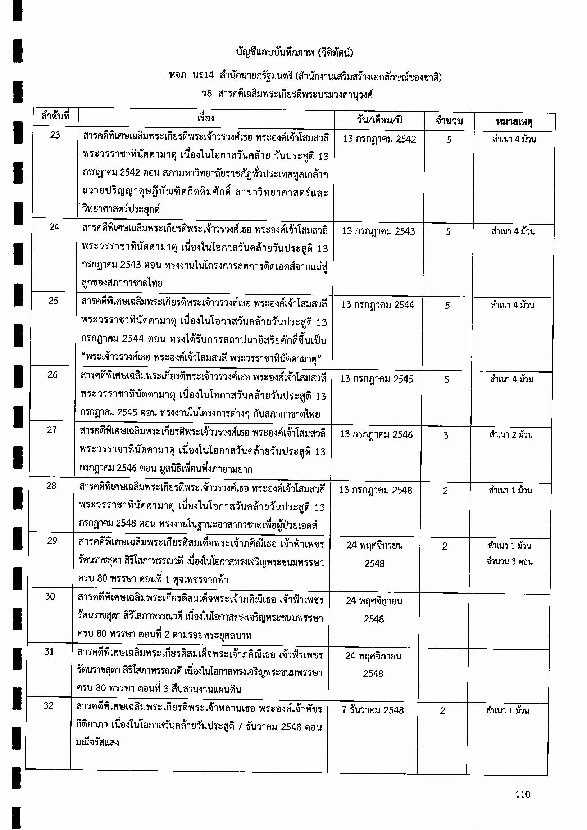 บัญชีแถบบันทึกภาพ (วีดิทัศน์)
หจภ นร14 สำนักนายกรัฐมนตรี (สำนักงานเสริมสร้างเอกลักษณ์ของชาติ)
ว8 สารคดีเฉลิมพระเกียรติพระบรมวงศานุวงศ์
ลำดับที่ เรื่อง วัน/เดือน/ปี จำนวน หมายเหตุ
23 สารคดีพิเศษเฉลิมพระเกียรติพระเจ้าวรวงศ์เธอ พระองค์เจ้าโสมสวลี 13 กรกฎาคม 2542 5 สำเนา 4 ม้วน
พระวรราชาทินัดดามาตุ เนื่องในโอกาสวันคล้าย วันประสูติ 13
กรกฎาคม 2542 ตอน สภามหาวิทยาลัยราชภัฏทั่วประเทศทูลเกล้าฯ
ถวายปริญญาดุษฎีบัณฑิตกิตติมศักดิ์ สาขาวิทยาศาสตร์และ
วิทยาศาสตร์ประยุกต์
24 สารคดีพิเศษเฉลิมพระเกียรติพระเจ้าวรวงศ์เธอ พระองค์เจ้าโสมสวลี 13 กรกฎาคม 2543 5 สำเนา 4 ม้วน
พระวรราชาทินัดดามาตุ เนื่องในโอกาสวันคล้ายวันประสูติ 13
กรกฎาคม 2543 ตอน ทรงงานในโครงการลดการติดเอดส์จากแม่สู่
ลูกของสภากาชาดไทย
25 สารคดีพิเศษเฉลิมพระเกียรติพระเจ้าวรวงศ์เธอ พระองค์เจ้าโสมสวลี 13 กรกฎาคม 2544 5 สำเนา 4 ม้วน
พระวรราชาทินัดดามาตุ เนื่องในโอกาสวันคล้ายวันประสูติ 13
กรกฎาคม 2544 ตอน ทรงได้รับการสถาปนาอิสริยศักดิ์ขึ้นเป็น
"พระเจ้าวรวงศ์เธอ พระองค์เจ้าโสมสวลี พระวรราชาทินัดดามาตุ"
26 สารคดีพิเศษเฉลิมพระเกียรติพระเจ้าวรวงศ์เธอ พระองค์เจ้าโสมสวลี 13 กรกฎาคม 2545 5 สำเนา 4 ม้วน
พระวรราชาทินัดดามาตุ เนื่องในโอกาสวันคล้ายวันประสูติ 13
กรกฎาคม 2545 ตอน ทรงงานในโครงการต่างๆ กับสภากาชาดไทย
27 สารคดีพิเศษเฉลิมพระเกียรติพระเจ้าวรวงศ์เธอ พระองค์เจ้าโสมสวลี 13 กรกฎาคม 2546 3 สำเนา 2 ม้วน
พระวรราชาทินัดดามาตุ เนื่องในโอกาสวันคล้ายวันประสูติ 13
กรกฎาคม 2546 ตอน มูลนิธิเพื่อนพึ่งภายามยาก
28 สารคดีพิเศษเฉลิมพระเกียรติพระเจ้าวรวงศ์เธอ พระองค์เจ้าโสมสวลี 13 กรกฎาคม 2548 2 สำเนา 1 ม้วน
พระวรราชาทินัดดามาตุ เนื่องในโอกาสวันคล้ายวันประสูติ 13
กรกฎาคม 2548 ตอน ทรงงานในฐานะอาสากาชาดเพื่อผู้ป่วยเอดส์
29 สารคดีพิเศษเฉลิมพระเกียรติสมเด็จพระเจ้าภคินีเธอ เจ้าฟ้าเพชร 24 พฤศจิกายน 2 สำเนา 1 ม้วน
รัตนราชสุดา สิริโสภาพรรณวดี เนื่องในโอกาสทรงเจริญพระชนมพรรษา 2548 จำนวน 3 ตอน
ครบ 80 พรรษา ตอนที่ 1 ดุจเพชรจากฟ้า
30 สารคดีพิเศษเฉลิมพระเกียรติสมเด็จพระเจ้าภคินีเธอ เจ้าฟ้าเพชร 24 พฤศจิกายน
รัตนราชสุดา สิริโสภาพรรณวดี เนื่องในโอกาสทรงเจริญพระชนมพรรษา 2548
ครบ 80 พรรษา ตอนที่ 2 ตามรอยพระยุคลบาท
31 สารคดีพิเศษเฉลิมพระเกียรติสมเด็จพระเจ้าภคินีเธอ เจ้าฟ้าเพชร 24 พฤศจิกายน
รัตนราชสุดา สิริโสภาพรรณวดี เนื่องในโอกาสทรงเจริญพระชนมพรรษา 2548
ครบ 80 พรรษา ตอนที่ 3 สืบสานงานแผ่นดิน
32 สารคดีพิเศษเฉลิมพระเกียรติพระเจ้าหลานเธอ พระองค์เจ้าพัชร 7 ธันวาคม 2548 2 สำเนา 1 ม้วน
กิติยาภา เนื่องในโอกาสวันคล้ายวันประสูติ 7 ธันวาคม 2548 ตอน
มณีจรัสแสง
110